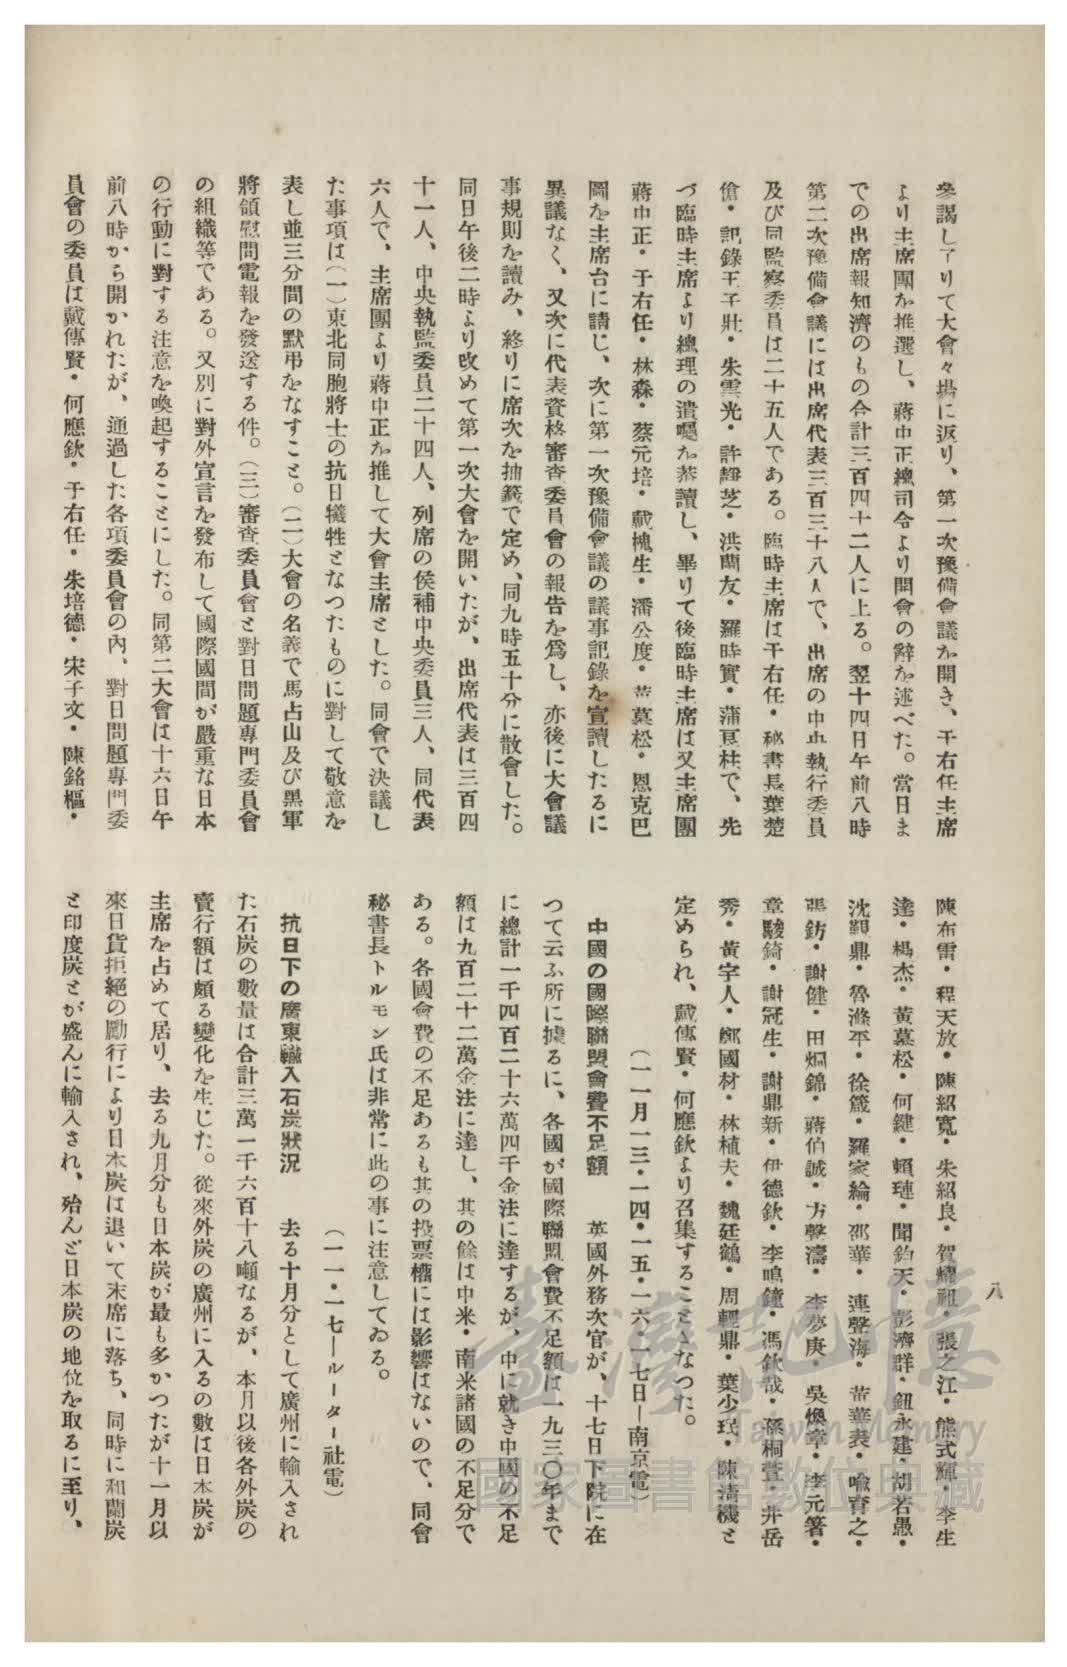 八
參謁し了りて大會々場に返り、第一次豫備會議を開き、于右任主席
より主席團を推選し、蔣中正總司令より開會の辭を述べた。當日ま
での出席報知濟のもの合計三百四十二人に上る。翌十四日午前八時
第二次豫備會議には出席代表三百三十八人で、出席の中央執行委員
及び同監察委員は二十五人である。臨時主席は于右任・秘書長葉楚
傖・記錄王子壯・朱雲光・許靜芝・洪蘭友・羅時實・蒲良柱で、先
づ臨時主席より總理の遺囑を恭讀し、畢りて後臨時主席は又主席團
蔣中正・于右任・林森・蔡元培・戴槐生・潘公度・黃慕松・恩克巴
圖を主席台に請じ、次に第一次豫備會議の議事記錄を宣讀したるに
異議なく、又次に代表資格審査委員會の報告を爲し、亦後に大會議
事規則を讀み、終りに席次を抽籤で定め、同九時五十分に散會した。
同日午後二時より改めて第一次大會を開いたが、出席代表は三百四
十一人、中央執監委員二十四人、列席の侯補中央委員三人、同代表
六人で、主席團より蔣中正を推して大會主席とした。同會で決議し
た事項は（一）東北同胞將士の抗日犧牲となつたものに對して敬意を
表し並三分間の默弔をなすこと。（二）大會の名義で馬占山及び黑軍
將領慰問電報を發送する件。（三）審查委員會と對日問題專門委員會
の組織等である。又別に對外宣言を發布して國際國間が嚴重な日本
の行動に對する注意を喚起することにした。同第二大會は十六日午
前八時から開かれたが、通過した各項委員會の內、對日問題專門委
員會の委員は戴傳賢・何應欽・于右任・朱培德・宋子文・陳銘樞・
陳布雷・程天放・陳紹寬・朱紹良・賀耀祖・張之江・熊式輝・李生
達・楊杰・黃慕松・何鍵・賴璉・聞鈞天・彭濟群・鈕永建・胡若愚・
沈鴻鼎・魯滌平・徐箴・羅家綸・邵華・連聲海・黃華表・喩育之・
張鈁・謝健・田烱錦・蔣伯誠・方聲濤・李夢庚・吳煥章・李元箸・
章駿錡・謝冠生・謝鼎新・伊德欽・李鳴鐘・馮欽哉・孫桐萱・井岳
秀・黃宇人・鄭國材・林植夫・魏廷鶴・周輕鼎・葉少珉・陳淸機と
定められ、戴傳賢・何應欽より召集することゝなつた。
（一一月一三・一四・一五・一六・一七日—南京電）
中國の國際聯盟會費不足額　英國外務次官が、十七日下院に在
つて云ふ所に據るに、各國が國際聯盟會費不足額は一九三〇年まで
に總計一千四百二十六萬四千金法に達するが、中に就き中國の不足
額は九百二十二萬金法に達し、其の餘は中米・南米諸國の不足分で
ある。各國會費の不足あるも其の投票權には影響はないので、同會
秘書長トルモン氏は非常に此の事に注意してゐる。
（一一・一七—ルーター社電）
抗日下の廣東輸入石炭狀況　去る十月分として廣州に輸入され
た石炭の數量は合計三萬一千六百十八噸なるが、本月以後各外炭の
賣行額は頗る變化を生じた。從來外炭の廣州に入るの數は日本炭が
主席を占めて居り、去る九月分も日本炭が最も多かつたが十一月以
來日貨拒絕の勵行により日本炭は退いて末席に落ち、同時に和蘭炭
と印度炭とが盛んに輸入され、殆んど日本炭の地位を取るに至り、
臺灣記憶
Taiwan Memory
國家圖書館數位典藏